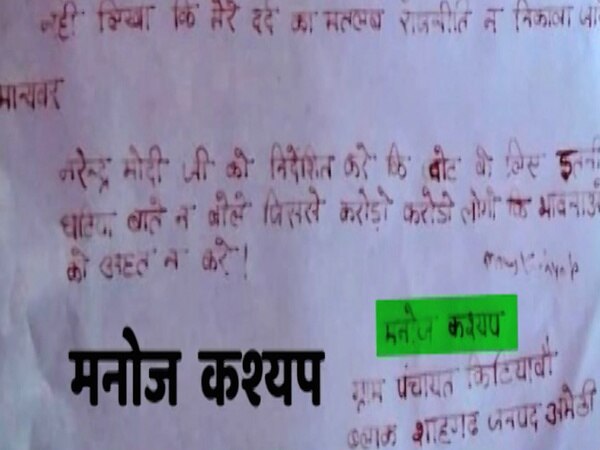 नहीं लिखा कि मेरे दर्द का मतलब राजनीति न निकाला जाये
मान्यवर
नरेन्द्र मोदी जी को निर्देशित करे कि वोट के लिए इतनी
घटिया बाते न बोले जिससे करोड़ो करोडो लोगो कि भावनाओ
को आहत न करे!
मनोज कश्यप
मनोज कश्यप
ग्राम पंचायत किटियावाँ
ब्लाक शाहगढ जनपद अमेठी